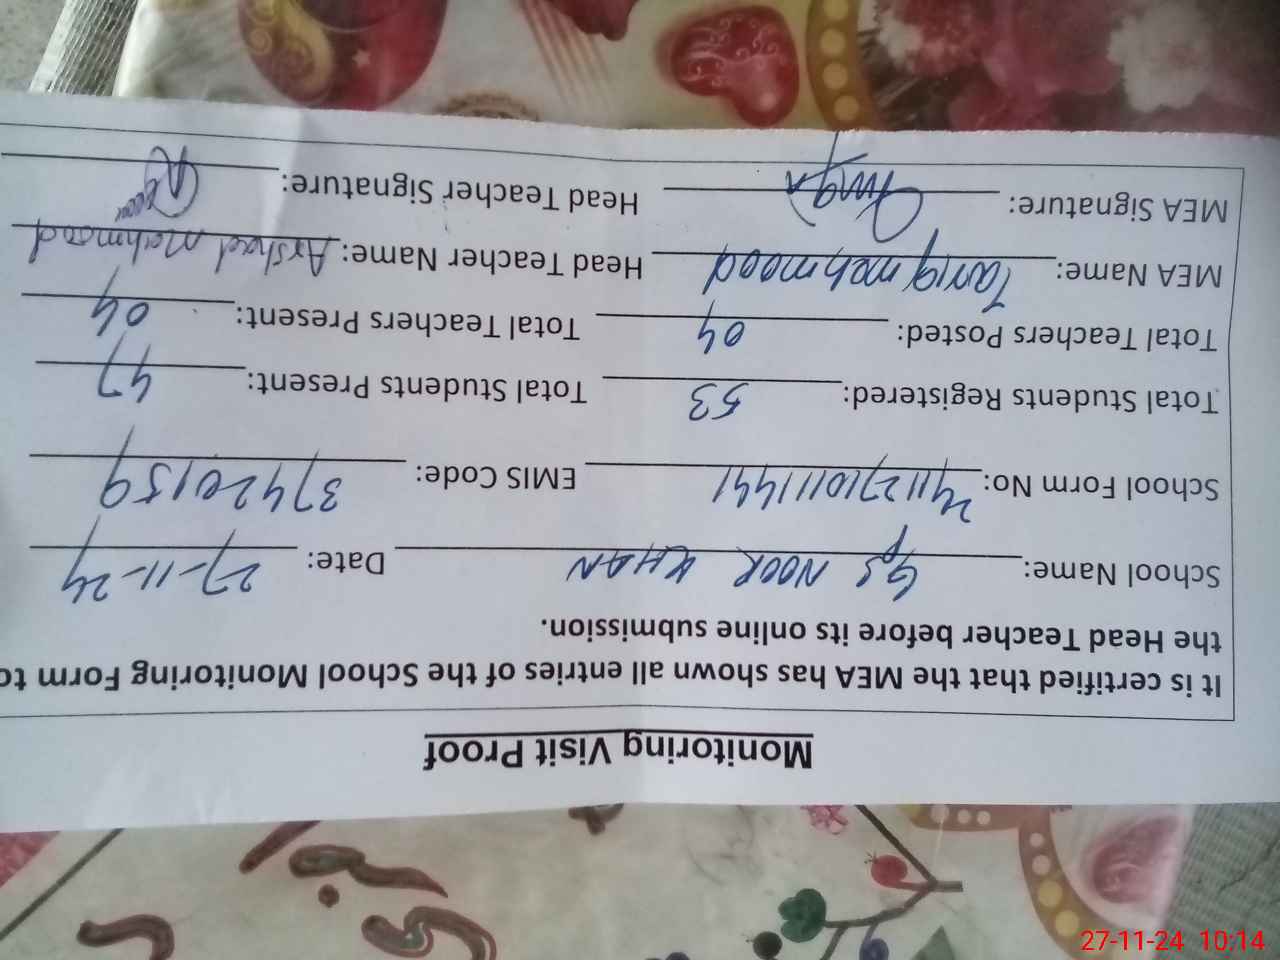 Monitoring Visit Proof
It is certified that the MEA has shown all entries of the School Monitoring Form to
the Head Teacher before its online submission.
School Name: GPS NOOR KHAN Date: 27-11-24
School Form No: EMIS Code: 37420159
Total Students Registered: 53 Total Students Present: 47
Total Teachers Posted: 04 Total Teachers Present: 04
MEA Name: Tariq mehmood Head Teacher Name: Arshad Mehmood
MEA Signature: Head Teacher Signature:
27-11-24 10:14